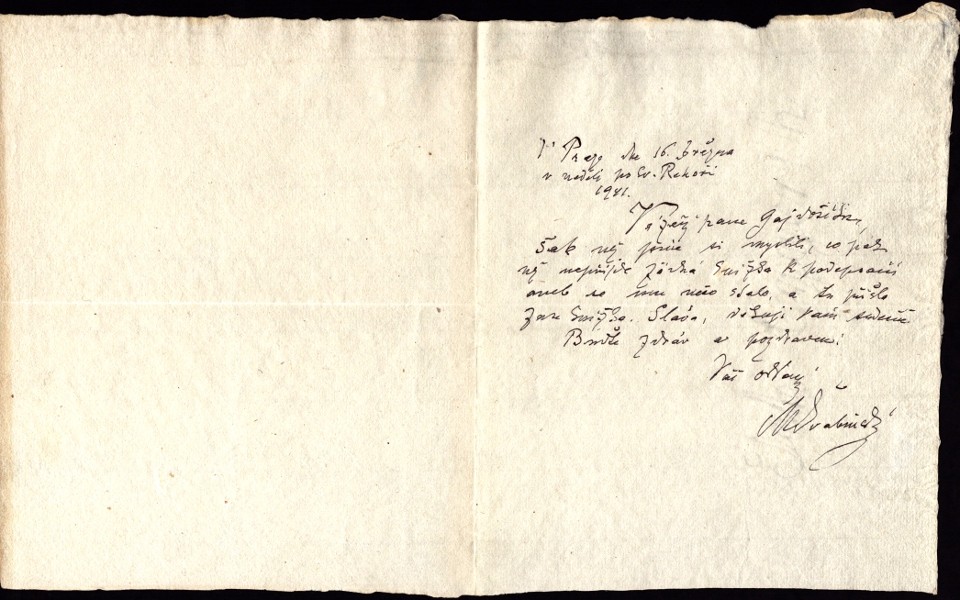 V Praze dne 16. března
v neděli po sv. Řehoři
1941.
Vážený pane Gajdošíku,
Šak už jsme si myslili, co pak
už nepřijde žádná knížka k podepsání
aneb se mu něco stalo, a tu přišla
zase knížka. Sláva, děkuji Vám srdečně
Buďte zdráv a pozdraven!
Váš oddaný